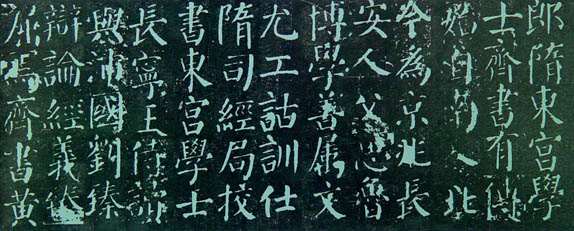 郎隋東宮學
士齊書有傳
始自南入北
今為京兆長
安人父思魯
博學善屬文
尤工詁訓仕
隋司經局校
書東宮學士
長寧王侍讀
與沛國劉臻
辯論經義臻
焉齊書黃